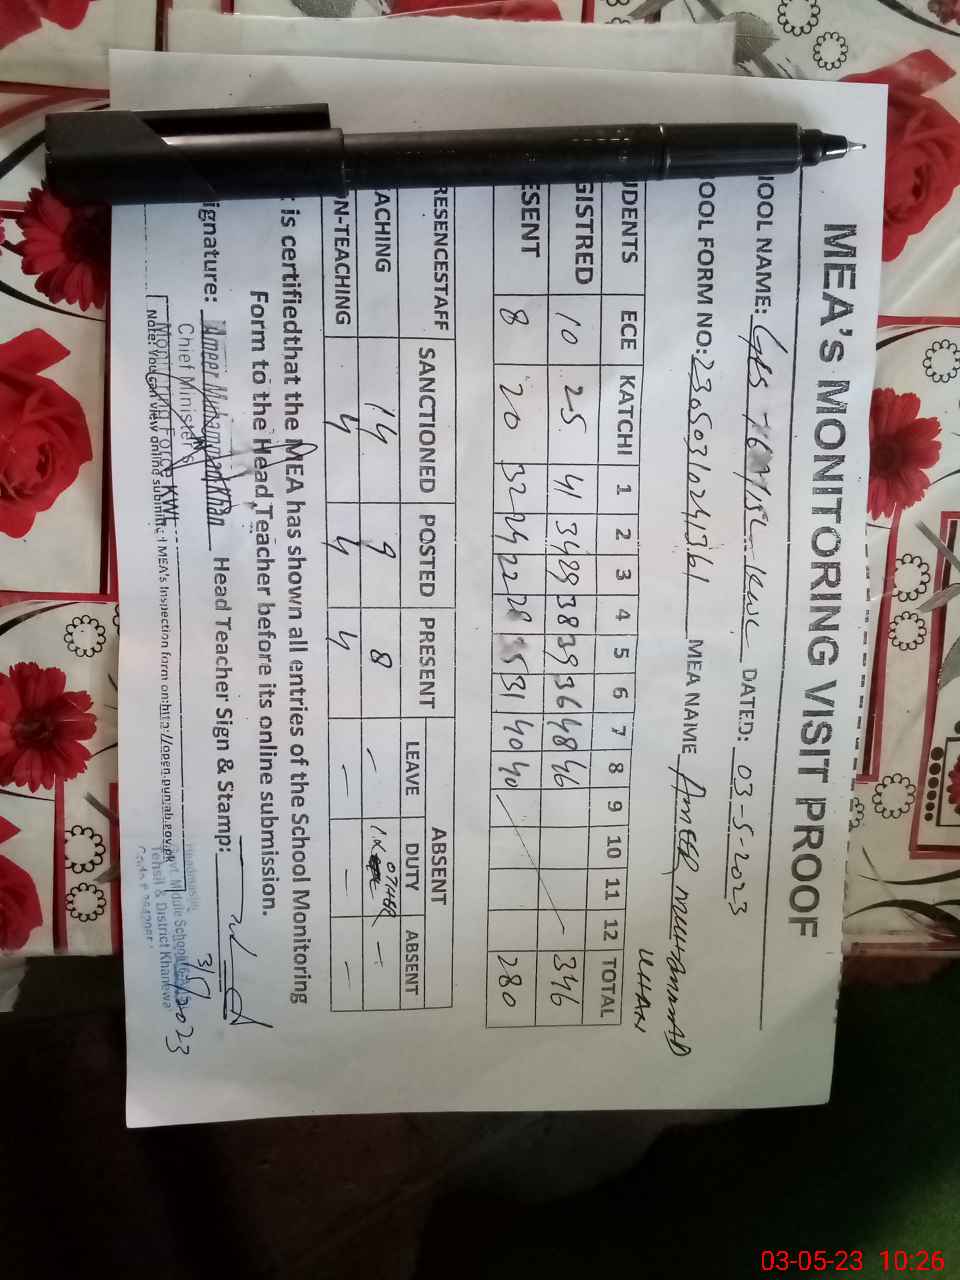 MEA'S MONITORING VISIT PROOF
HOOL NAME: DATED: 03-5-2023
OOL FORM NO: MEA NAME AMEER MUHAMMAD
KHAN
UDENTS ECE KATCHI 1 2 3 4 5 6 7 8 9 10 11 12 TOTAL
GISTRED 10 25 41 34 29 38 39 36 48 46 346
ESENT 8 20 32 24 22 28 35 31 40 40 280
RESENCESTAFF SANCTIONED POSTED PRESENT ABSENT
LEAVE DUTY ABSENT
ACHING 14 9 8 - 1 OTHER -
N-TEACHING 4 4 4 - - -
t is certifiedthat the MEA has shown all entries of the School Monitoring
Form to the Head Teacher before its online submission.
ignature: Ameer Muhammad Khan Head Teacher Sign & Stamp:
Chief Minister's
MONITORING FORCE KWL
Note: You can view online submitted MEA's Inspection form on:http://open.punjab.gov.pk
Govt. Middle School
Tehsil & District Khanewal
3/5/2023
03-05-23 10:26